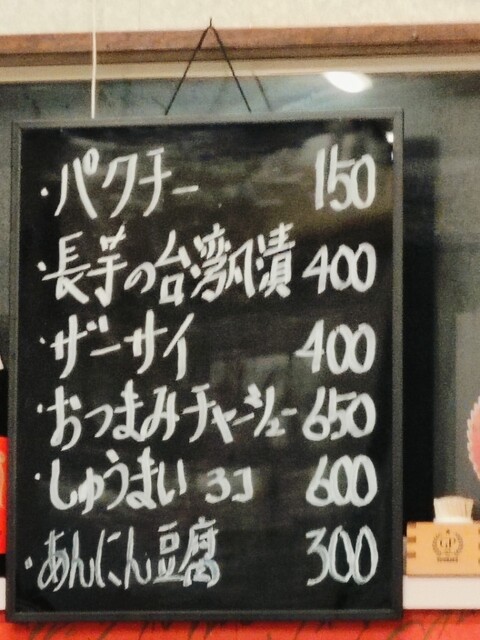 ・パクチー 150
・長芋の台湾風漬 400
・ザーサイ 400
・おつまみチャーシュー 650
・しゅうまい 3コ 600
・あんにん豆腐 300
GP